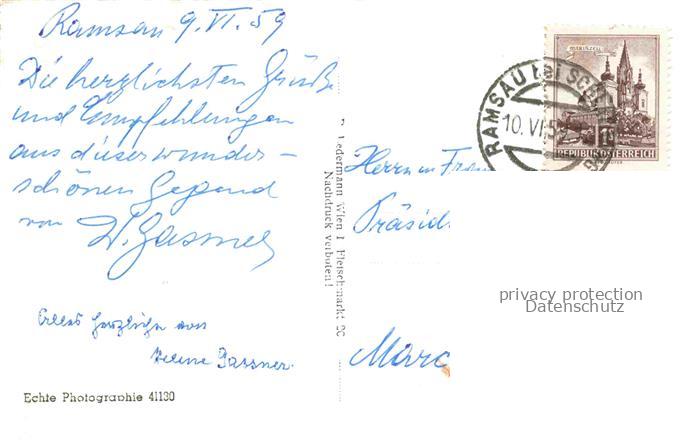 Ramsau 9.VI.59
Die herzlichsten Grüße
und Empfehlungen
aus dieser wunder-
schönen Gegend
von W. Gassner
Alles herzliche von
Helene Gassner.
Echte Photographie 41130
P. Ledermann Wien I Fleischmarkt 20
Nachdruck verboten!
MARIAZELL
RAMSAU bei SCH
10. VI. 59
1S
REPUBLIK ÖSTERREICH
Herrn u Frau
Präsid
Marc
privacy protection
Datenschutz